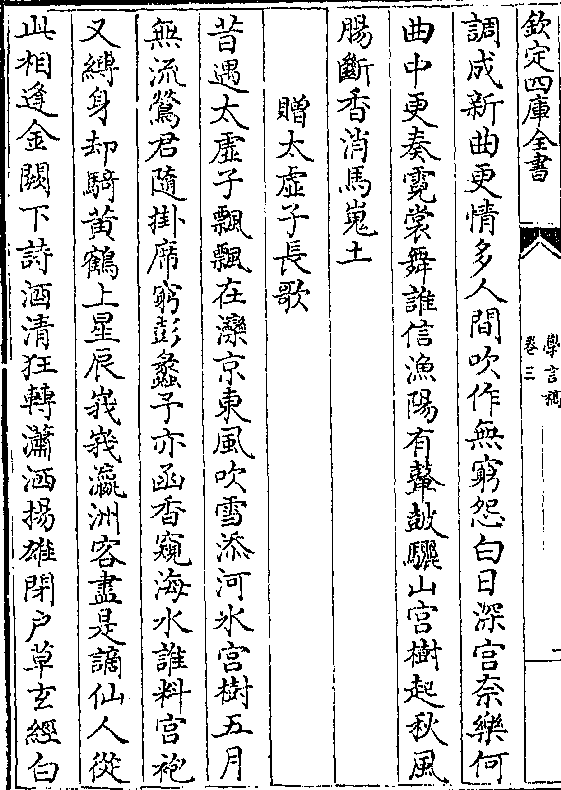 欽定四庫全書
學言稿
卷三
調成新曲更情多人間吹作無窮怨白日深宮奈樂何
曲中更奏霓裳舞誰信漁陽有鼙鼓驪山宮樹起秋風
腸斷香消馬嵬土
贈太虛子長歌
昔遇太虛子飄飄在灤京東風吹雪添河氷宮樹五月
無流鶯君隨掛席窮彭蠡予亦函香窺海水誰料宮袍
又縛身却騎黃鶴上星辰峩峩瀛洲客盡是謫仙人從
此相逢金闕下詩酒清狂轉瀟洒揚雄閉户草玄經白